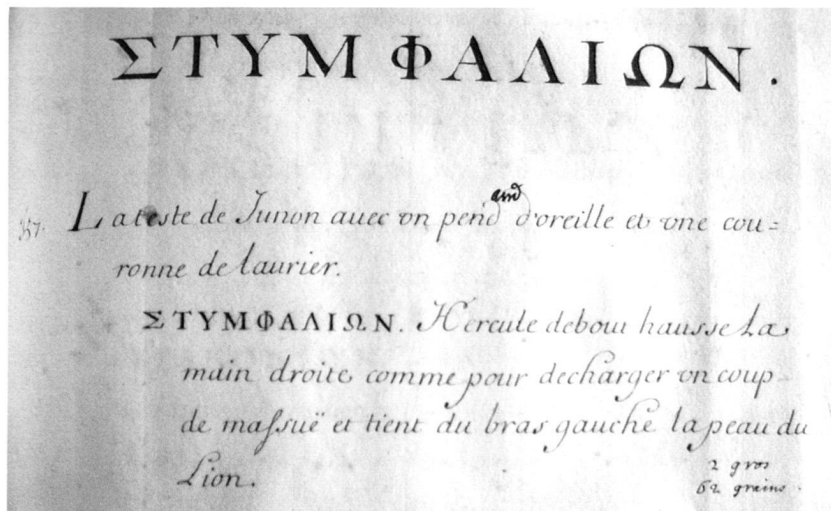 ΣΤΥΜΦΑΛΙΩΝ.
357. La teste de Junon auec vn pend and d'oreille et vne cou=
ronne de laurier.
ΣΤΥΜΦΑΛΙΩΝ. Hercule debout hausse La
main droite comme pour decharger vn coup
de massuë et tient du bras gauche la peau du
Lion.
2 gros
62 grains.